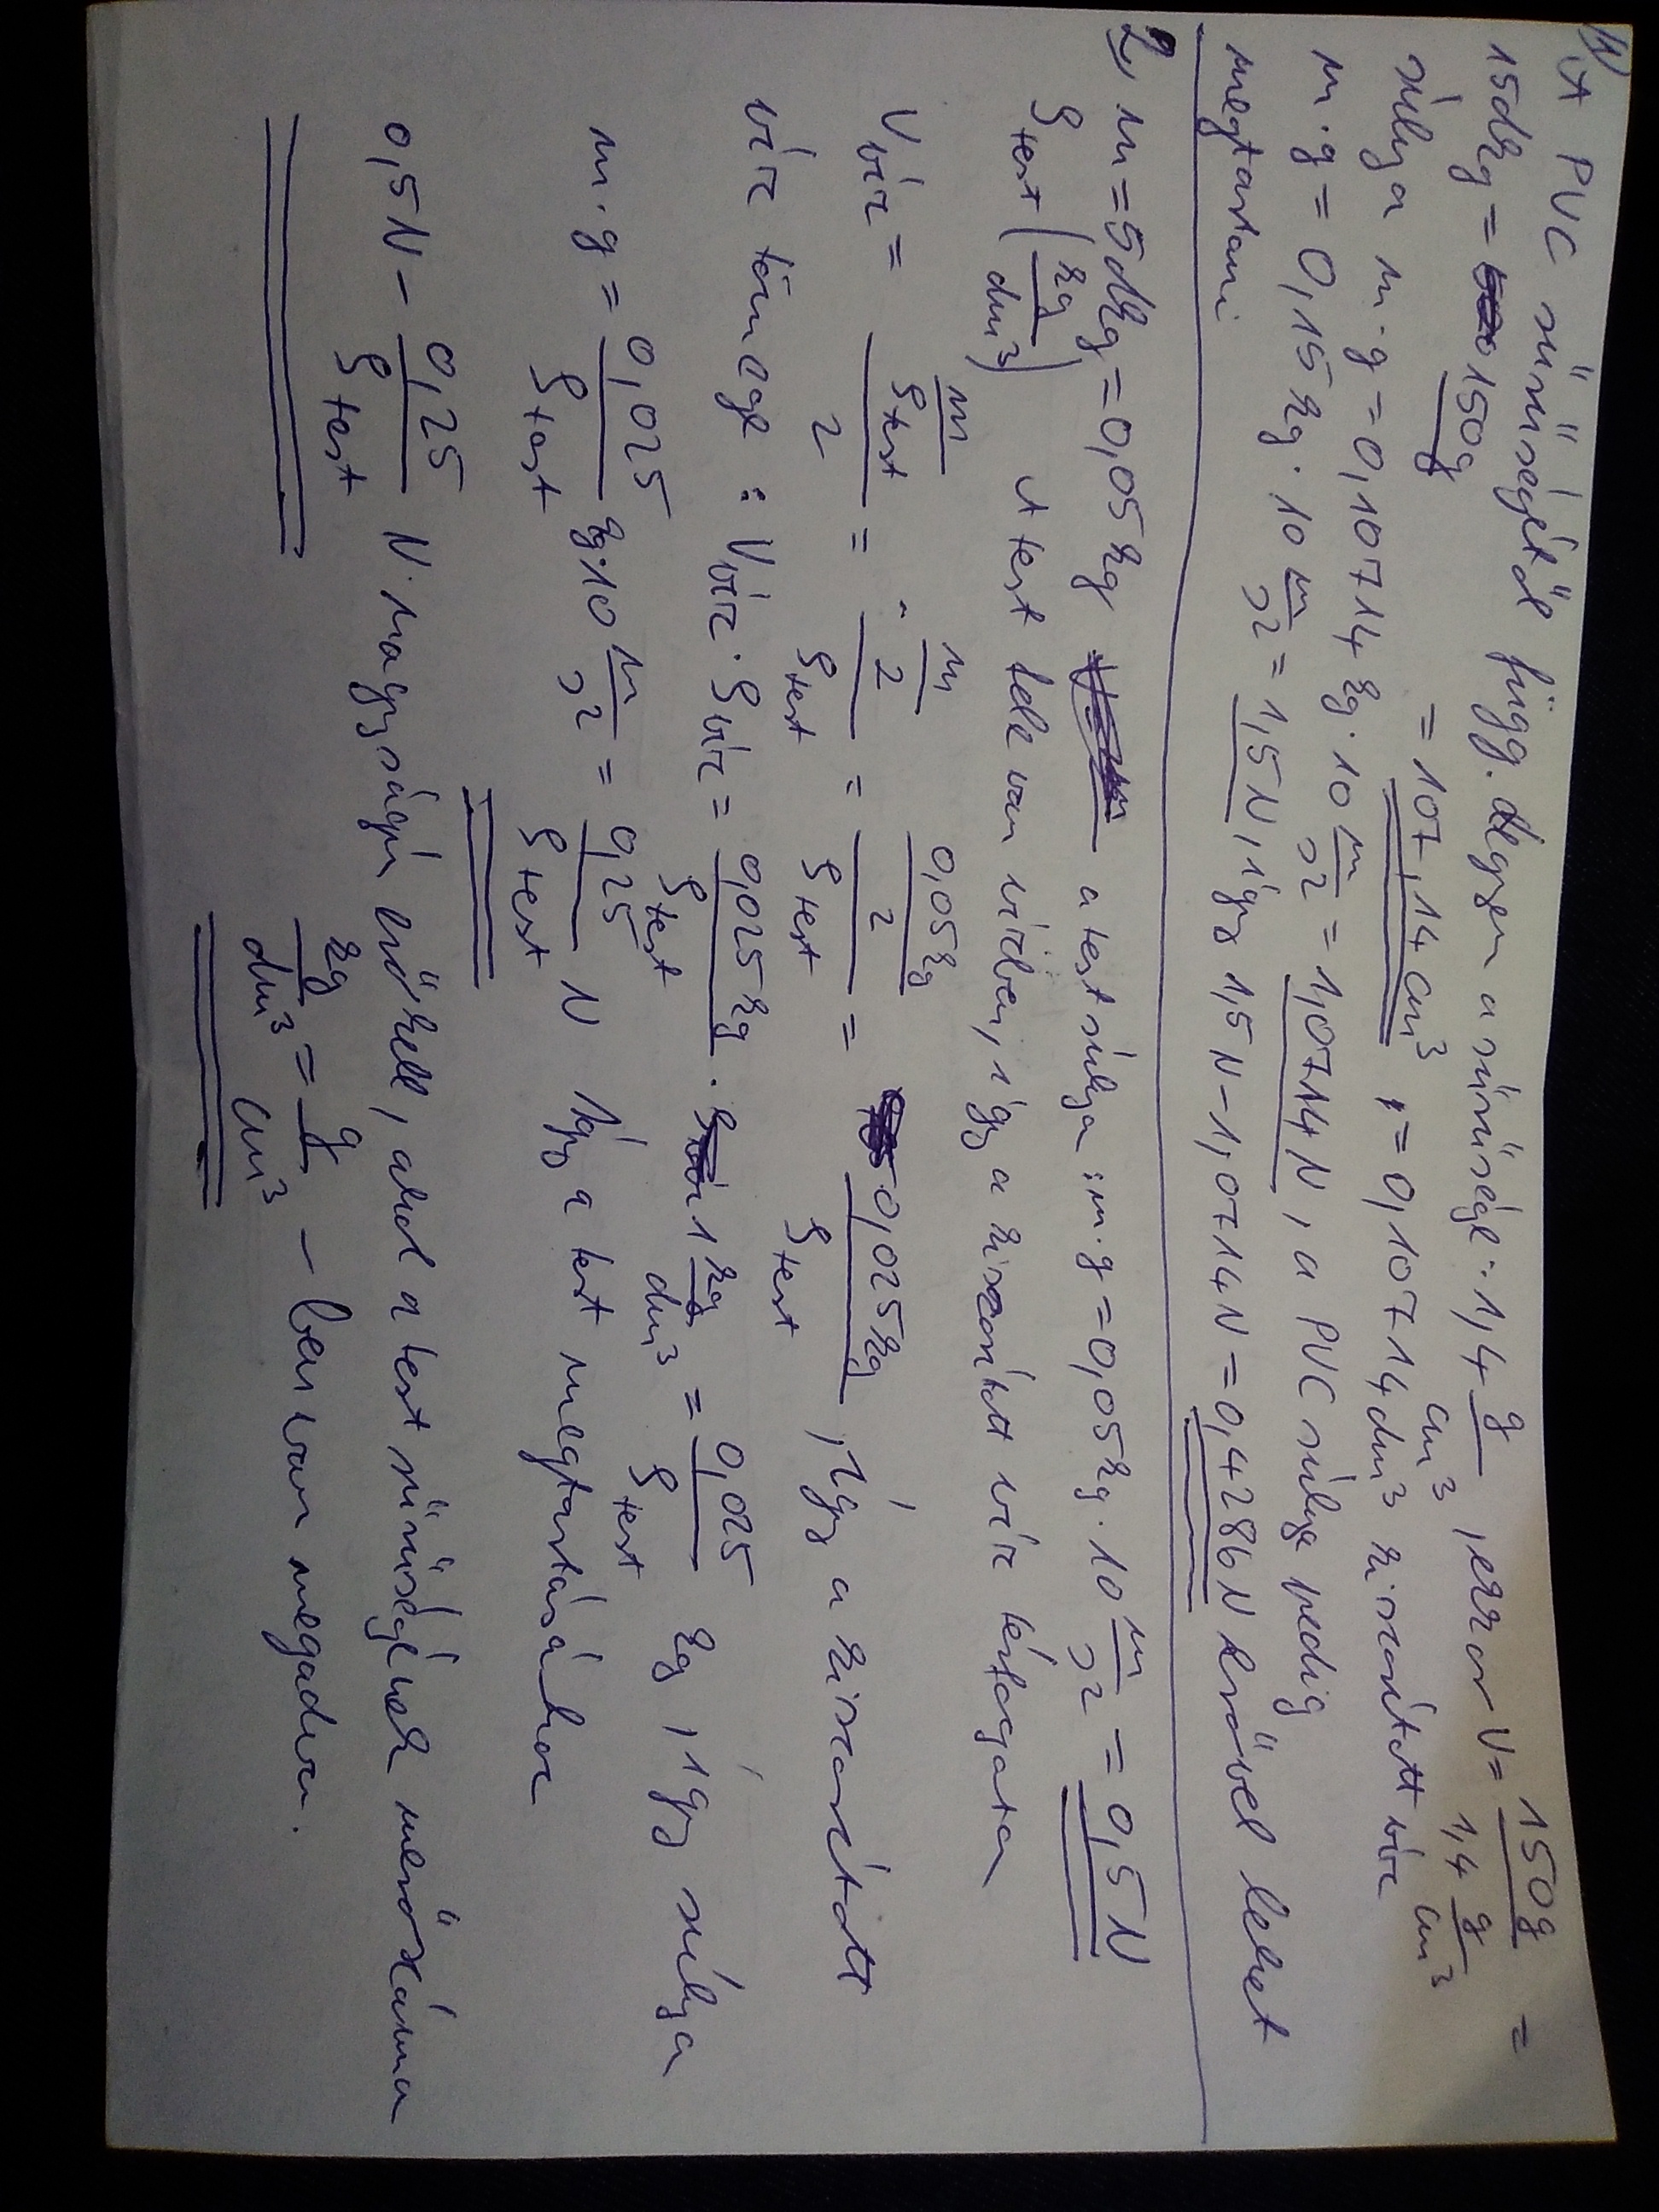 1) A PVC sűrűségétől függ. Legyen a sűrűsége: 1,4 g/cm³, ekkor V = 150g / 1,4 g/cm³ =
15dkg = 150g = 107,14 cm³, = 0,10714 dm³ kiszorított víz
súlya m·g = 0,10714 kg · 10 m/s² = 1,0714 N, a PVC súlya pedig
m·g = 0,15 kg · 10 m/s² = 1,5 N, így 1,5 N - 1,0714 N = 0,4286 N erővel lehet
megtartani
2) m = 5dkg = 0,05 kg a test súlya: m·g = 0,05 kg · 10 m/s² = 0,5 N
ρtest (kg/dm³) A test fele van vízben, így a kiszorított víz térfogata
Vvíz = (m/ρtest)/2 = (m/2)/ρtest = (0,05kg/2)/ρtest = 0,025kg/ρtest, Így a kiszorított
víz tömege: Vvíz · ρvíz = 0,025 kg/ρtest · 1 kg/dm³ = 0,025/ρtest kg, így súlya
m·g = 0,025/ρtest kg·10 m/s² = 0,25/ρtest N Így a test megtartásához
0,5N - 0,25/ρtest N nagyságú erő kell, ahol a test sűrűségének mérőszáma
kg/dm³ = g/cm³ - ben van megadva.